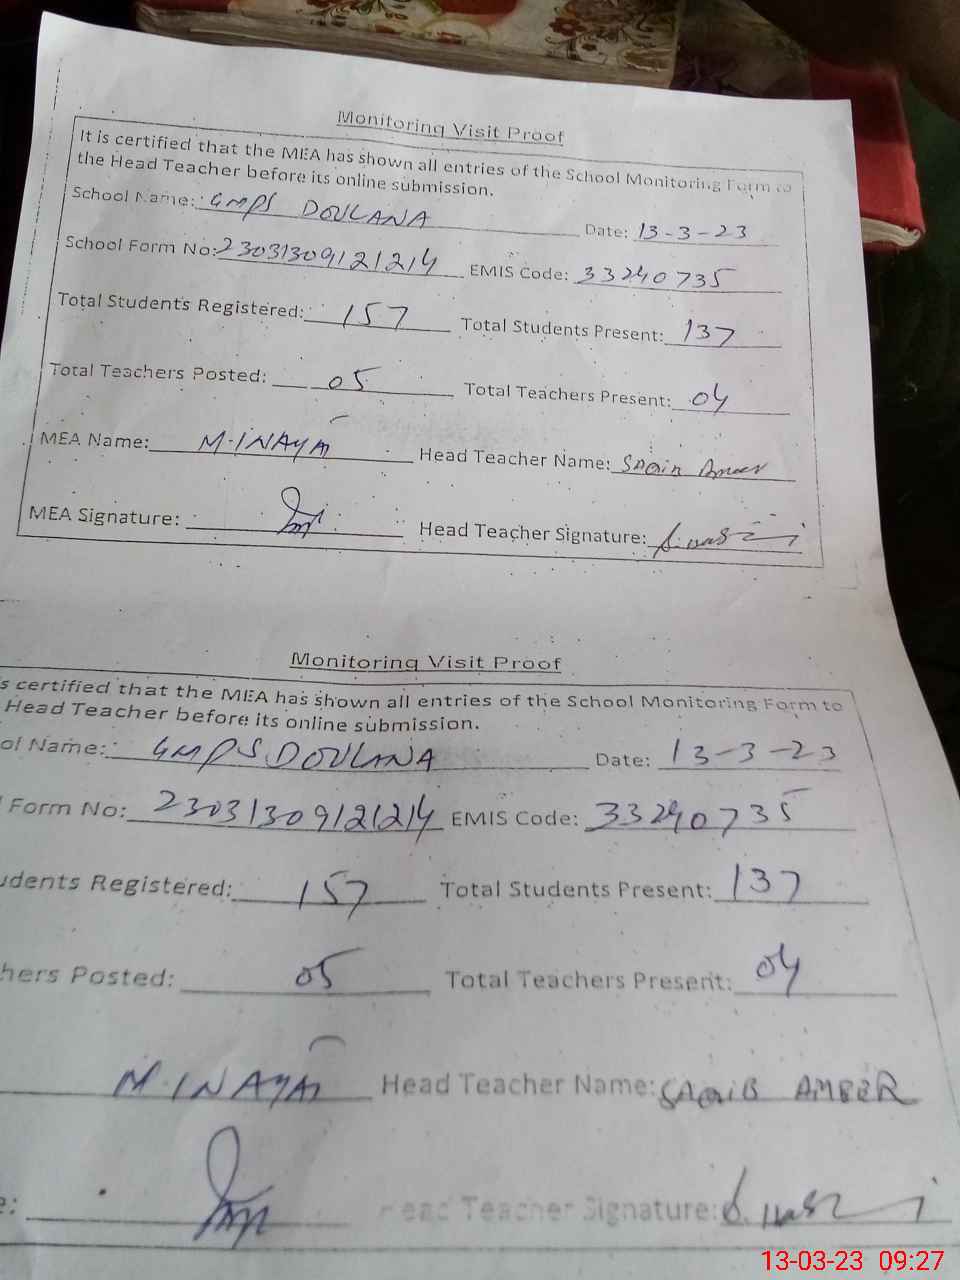 Monitoring Visit Proof
It is certified that the MEA has shown all entries of the School Monitoring Form to
the Head Teacher before its online submission.
School Name: GMPS DOULANA Date: 13-3-23
School Form No: 23031309121214 EMIS Code: 33240735
Total Students Registered: 157 Total Students Present: 137
Total Teachers Posted: 05 Total Teachers Present: 04
MEA Name: M.INAYAT Head Teacher Name: SAQIB AMEER
MEA Signature: Head Teacher Signature:
Monitoring Visit Proof
s certified that the MEA has shown all entries of the School Monitoring Form to
Head Teacher before its online submission.
ol Name: GMPS DOULANA Date: 13-3-23
Form No: 23031309121214 EMIS Code: 33240735
udents Registered: 157 Total Students Present: 137
hers Posted: 05 Total Teachers Present: 04
M.INAYAT Head Teacher Name: SAQIB AMEER
e: Head Teacher Signature:
13-03-23 09:27